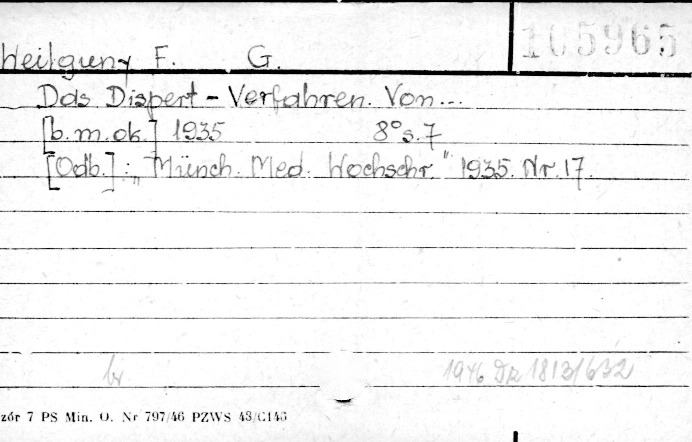 105965
Weilguny F. G.
Das Dispert - Verfahren. Von...
[b.m.ok.] 1935 8° s. 7
[Odb.]: „Münch. Med. Wochschr." 1935. Nr. 17.
br. 1946 Dz 1813/632
zór 7 PS Min. O. Nr 797/46 PZWS 43/C143